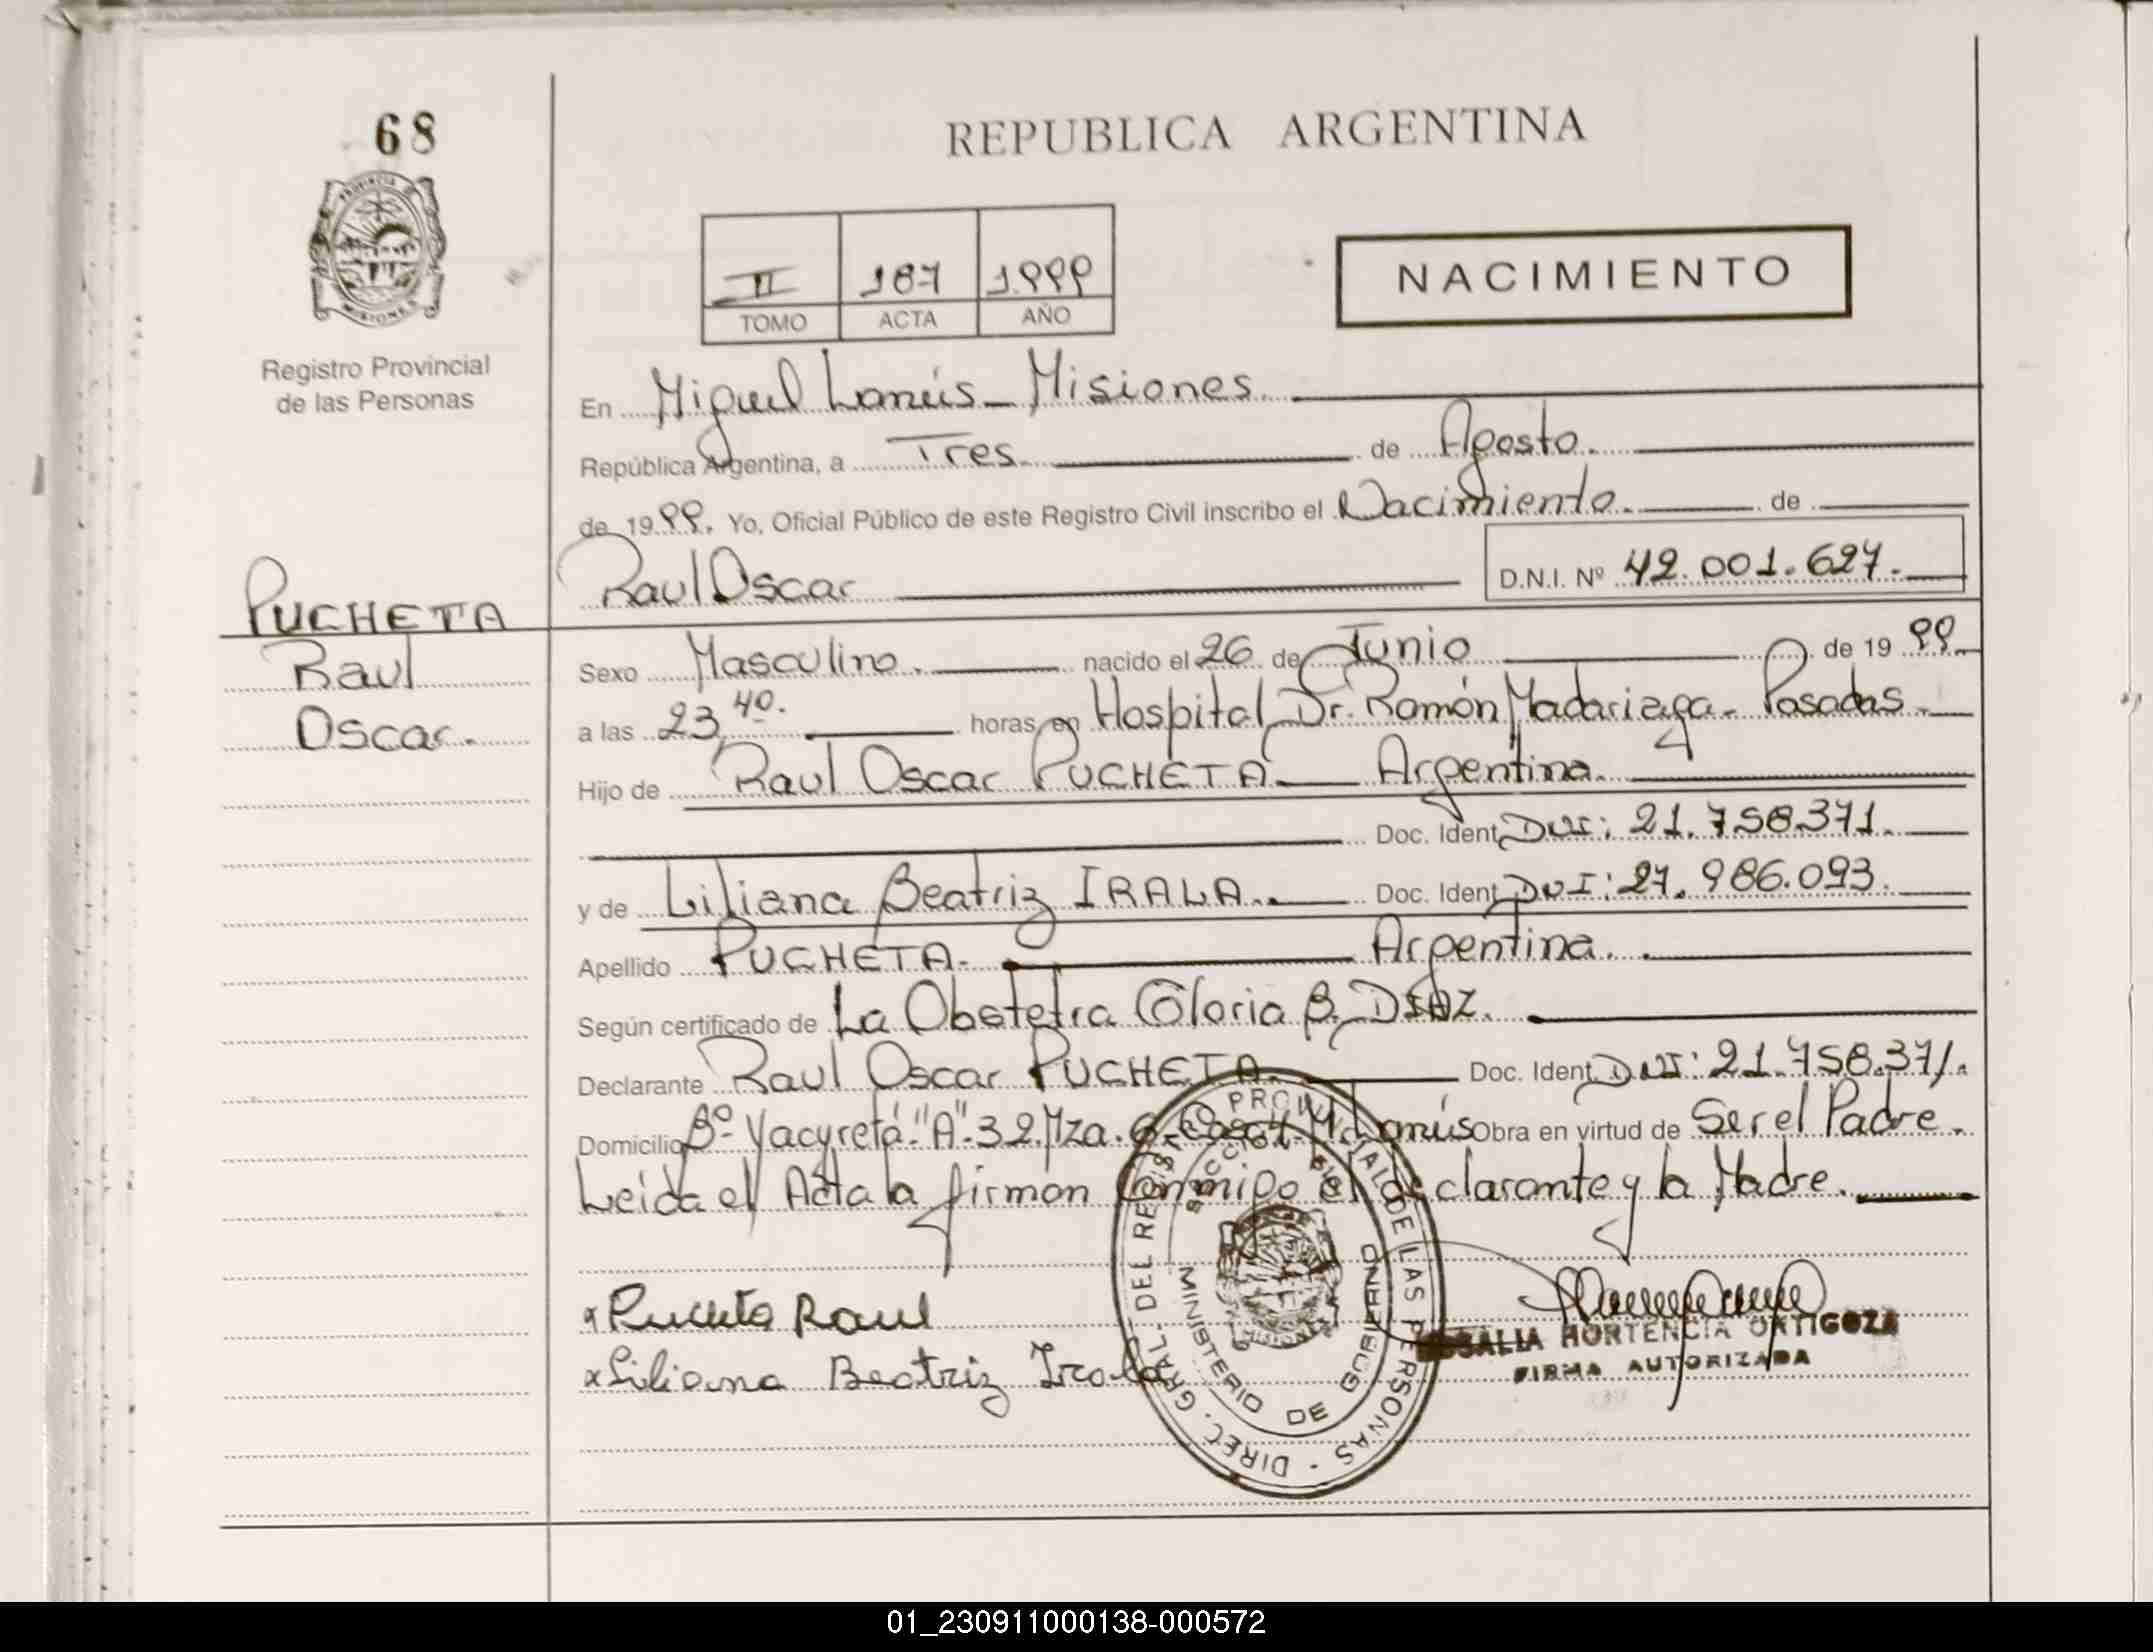 68
REPUBLICA ARGENTINA
PROVINCIA DE
MISIONES
Registro Provincial
de las Personas
II 187 1.999
TOMO ACTA AÑO
NACIMIENTO
En Miguel Lanús - Misiones.
República Argentina, a Tres. de Agosto.
de 1999. Yo, Oficial Público de este Registro Civil inscribo el Nacimiento. de
Raul Oscar D.N.I. Nº 42.001.627.
PUCHETA
Raul
Oscar.
Sexo Masculino. nacido el 26 de Junio de 1999.
a las 23,40. horas en Hospital Dr. Ramón Madariaga - Posadas.
Hijo de Raul Oscar PUCHETA Argentina.
Doc. Ident. DNI: 21.758.371.
y de Liliana Beatriz IRALA. Doc. Ident. DNI: 27.986.093.
Apellido PUCHETA. Argentina.
Según certificado de La Obstetra Gloria B. DIAZ.
Declarante Raul Oscar PUCHETA. Doc. Ident. DNI: 21.758.371.
Domicilio Bº Yacyretá "A" 32 Mza. 6 Casa M. Lanús Obra en virtud de Ser el Padre.
Leida el Acta la firman Conmigo el declarante y la Madre.
x Pucheta Raul
x Liliana Beatriz Irala
DIREC. GRAL. DEL REGISTRO PROVINCIAL DE LAS PERSONAS
MINISTERIO DE GOBIERNO
MISIONES
ROSALIA HORTENCIA ORTIGOZA
FIRMA AUTORIZADA
01_230911000138-000572